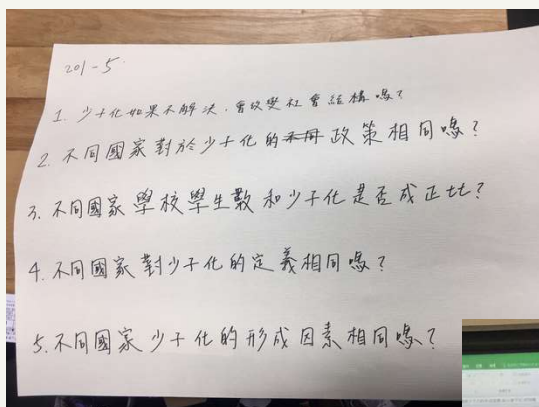 201-5
1. 少子化如果不解決，會改變社會結構嗎？
2. 不同國家對於少子化的政策相同嗎？
3. 不同國家學校學生數和少子化是否成正比？
4. 不同國家對少子化的定義相同嗎？
5. 不同國家少子化的形成因素相同嗎？